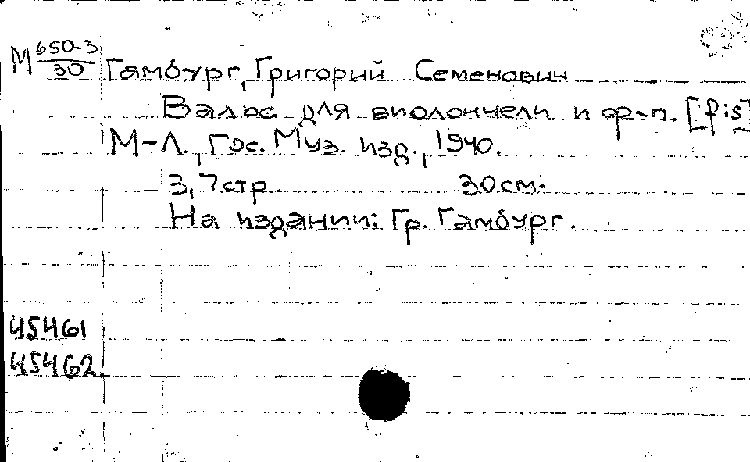 М 650-3/30 Гамбург, Григорий Семенович
Вальс для виолончели и ф-п. [fis]
М-Л., Гос. Муз. изд., 1940.
3, 7 стр 30 см.
На издании: Гр. Гамбург.
45461
45462.